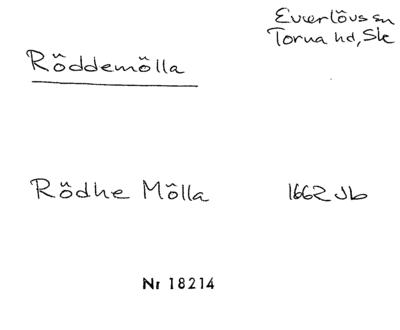 Everlövs sn
Torna hd, Sk
Röddemölla
Rödhe Mölla 1662 Jb
Nr 18214